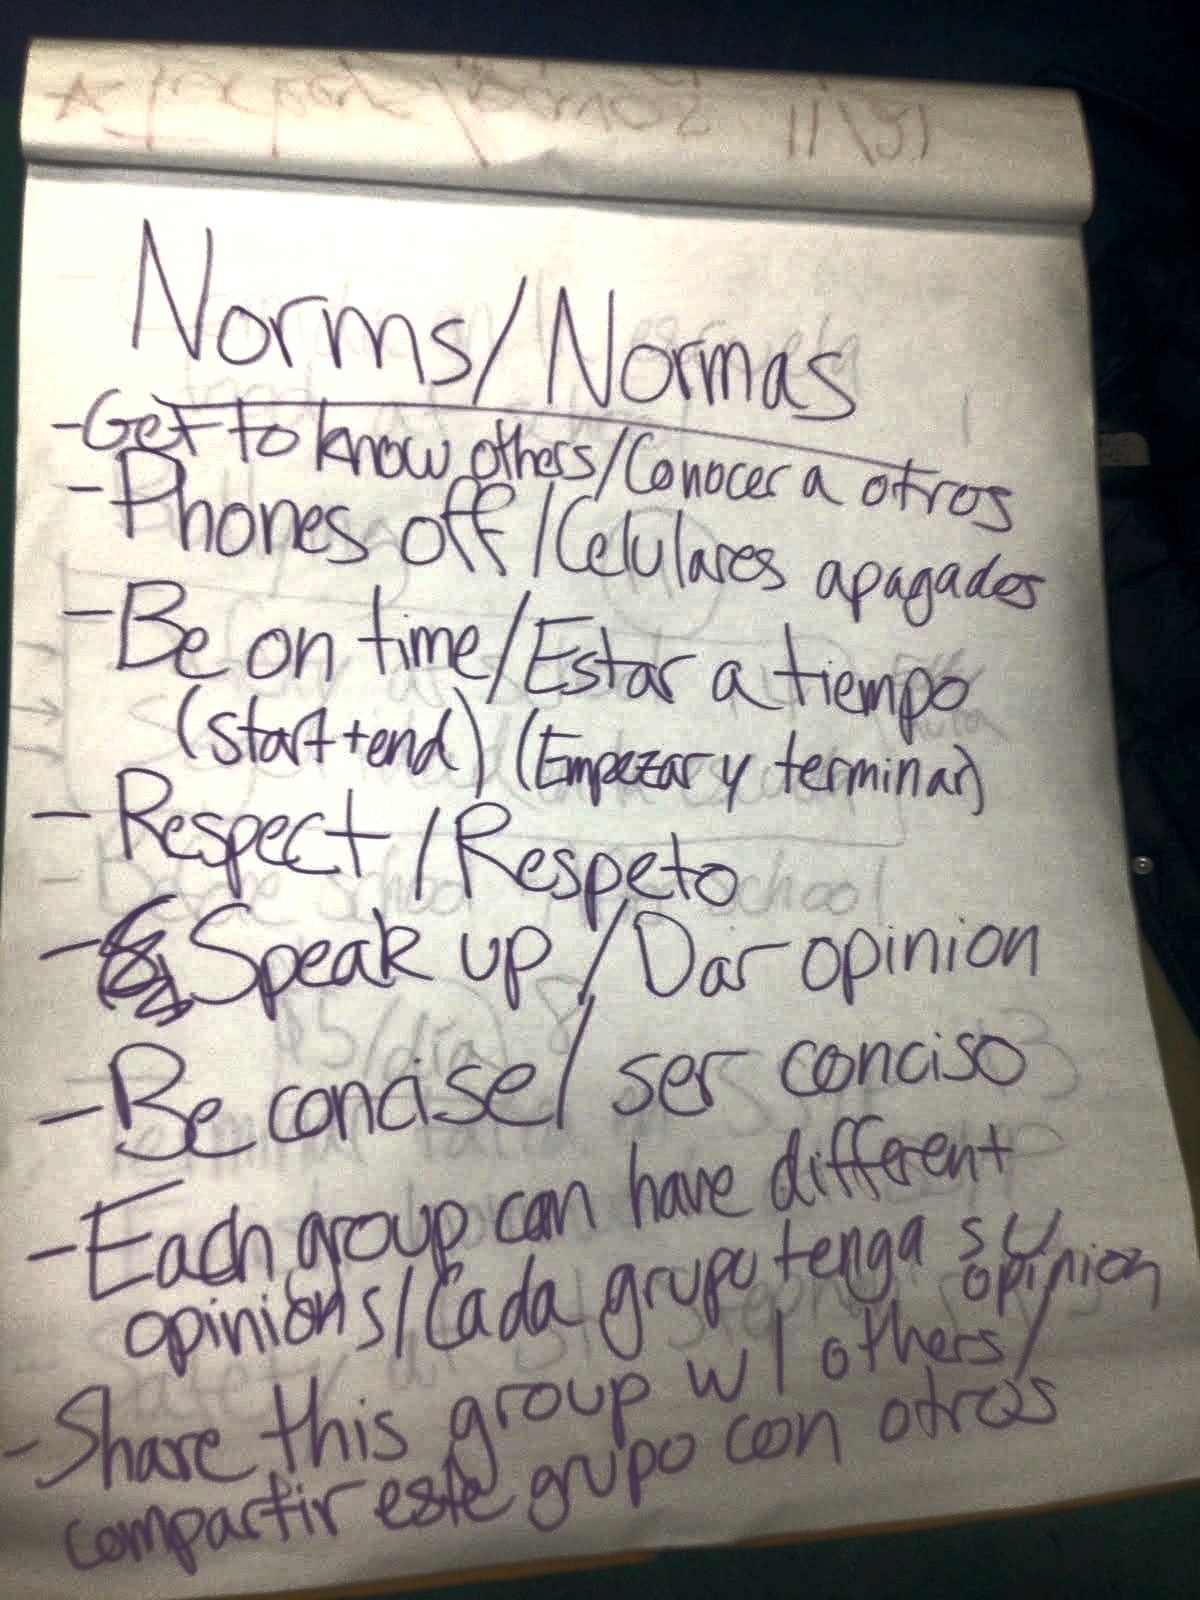 Norms/Normas
-Get to know others/Conocer a otros
-Phones off/Celulares apagados
-Be on time/Estar a tiempo
(start+end) (Empezar y terminar)
-Respect/Respeto
-Speak up/Dar opinion
-Be concise/ser conciso
-Each group can have different
opinions/Cada grupo tenga su
opinion
-Share this group w/ others/
compartir este grupo con otros